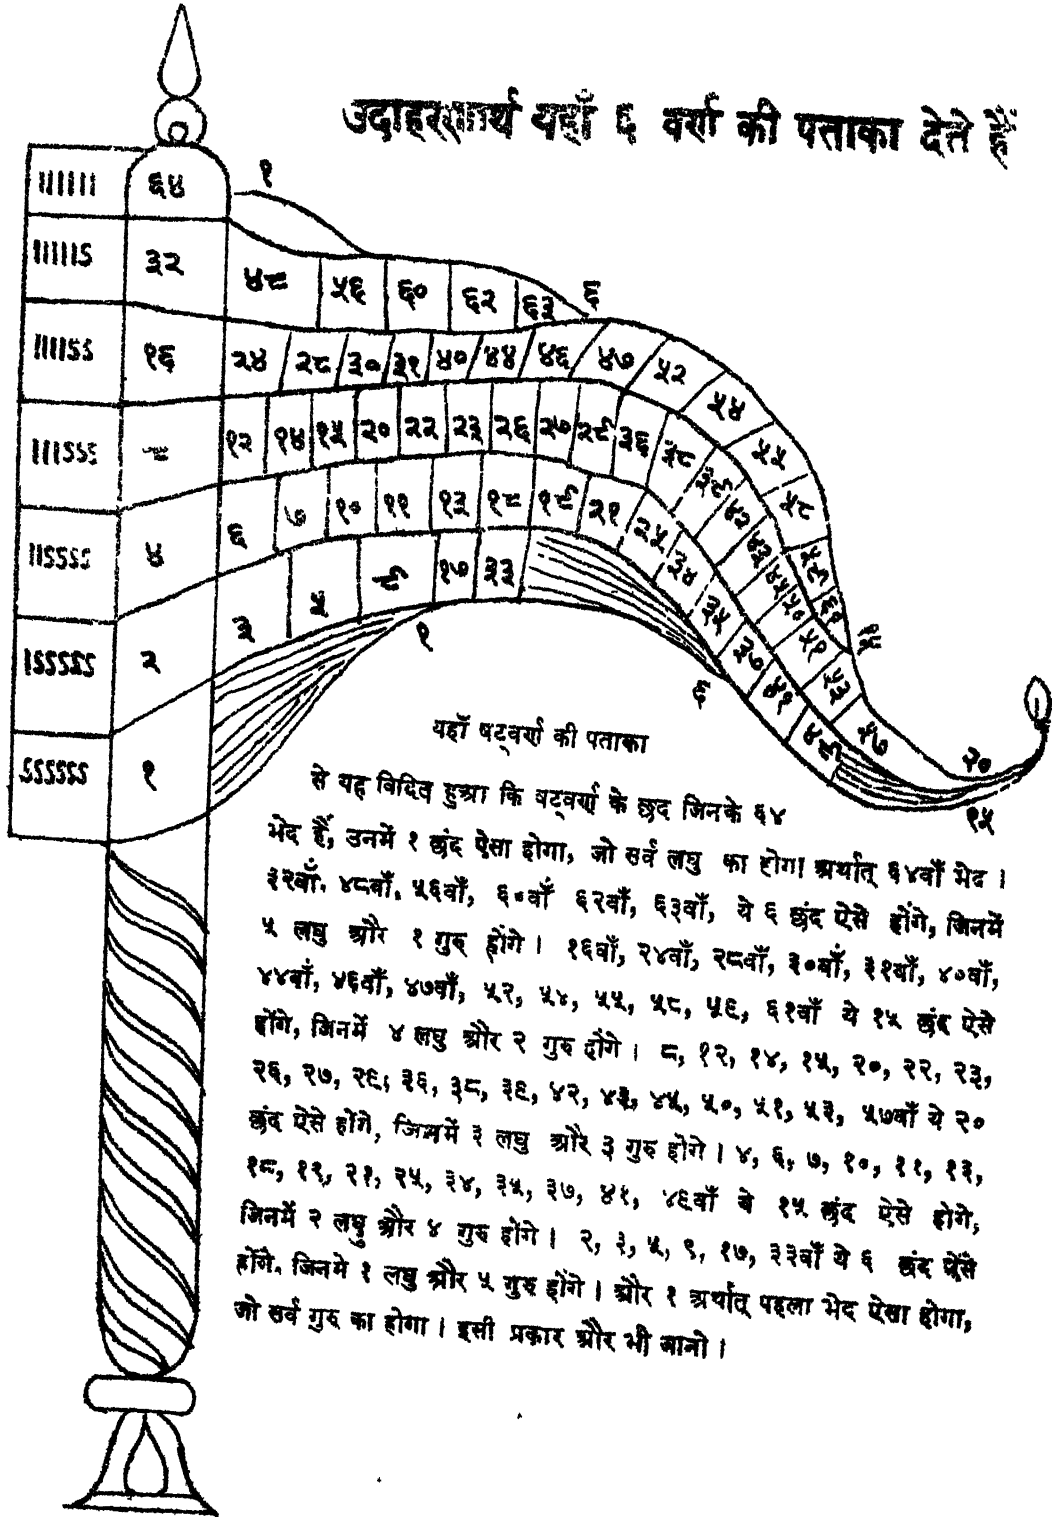 उदाहरणार्थ यहाँ ६ वर्ण की पताका देते हैं
।।।।।। ६४ १
।।।।।S ३२ ४८ ५६ ६० ६२ ६३ ६
।।।।SS १६ २४ २८ ३० ३१ ४० ४४ ४६ ४७ ५२ ५४ ५५ ५८ ५९ ६१ १५
।।।SSS ८ १२ १४ १५ २० २२ २३ २६ २७ २९ ३६ ३८ ३९ ४२ ४३ ४५ ५० ५१ ५३ ५७ २०
।।SSSS ४ ६ ७ १० ११ १३ १८ १९ २१ २५ ३४ ३५ ३७ ४१ ४९ १५
।SSSSS २ ३ ५ ९ १७ ३३ ६
SSSSSS १ १
यहाँ षट्वर्ण की पताका
से यह विदित हुआ कि षट्वर्ण के छद जिनके ६४
भेद हैं, उनमें १ छंद ऐसा होगा, जो सर्व लघु का होगा अर्थात् ६४वाँ भेद ।
३२वाँ, ४८वाँ, ५६वाँ, ६०वाँ ६२वाँ, ६३वाँ, ये ६ छंद ऐसे होंगे, जिनमें
५ लघु और १ गुरु होंगे । १६वाँ, २४वाँ, २८वाँ, ३०वाँ, ३१वाँ, ४०वाँ,
४४वाँ, ४६वाँ, ४७वाँ, ५२, ५४, ५५, ५८, ५९, ६१वाँ ये १५ छंद ऐसे
होंगे, जिनमें ४ लघु और २ गुरु होंगे । ८, १२, १४, १५, २०, २२, २३,
२६, २७, २९, ३६, ३८, ३९, ४२, ४३, ४५, ५०, ५१, ५३, ५७वाँ ये २०
छंद ऐसे होंगे, जिनमें ३ लघु और ३ गुरु होगे । ४, ६, ७, १०, ११, १३,
१८, १९, २१, २५, ३४, ३५, ३७, ४१, ४९वाँ ये १५ छंद ऐसे होगे,
जिनमें २ लघु और ४ गुरु होंगे । २, ३, ५, ९, १७, ३३वाँ ये ६ छंद ऐसे
होंगे, जिनमे १ लघु और ५ गुरु होंगे । और १ अर्थात् पहला भेद ऐसा होगा,
जो सर्व गुरु का होगा । इसी प्रकार और भी जानो ।